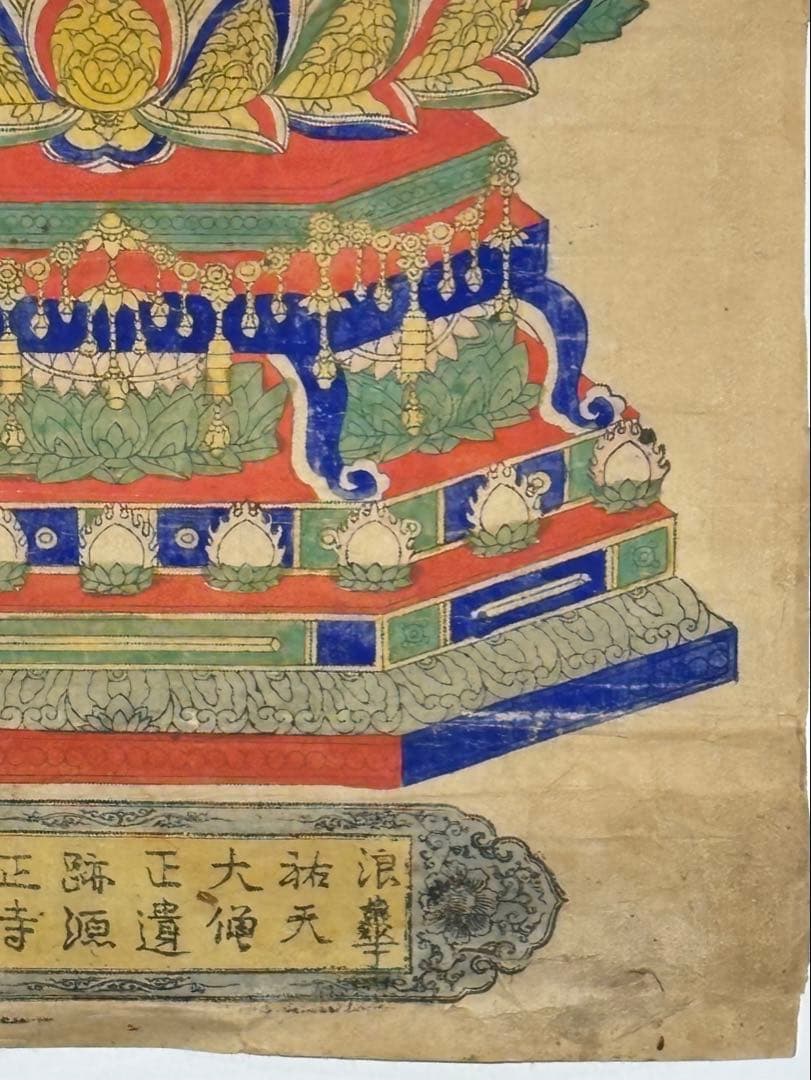 浪華
祐天
大僧
正遺
跡源
正寺